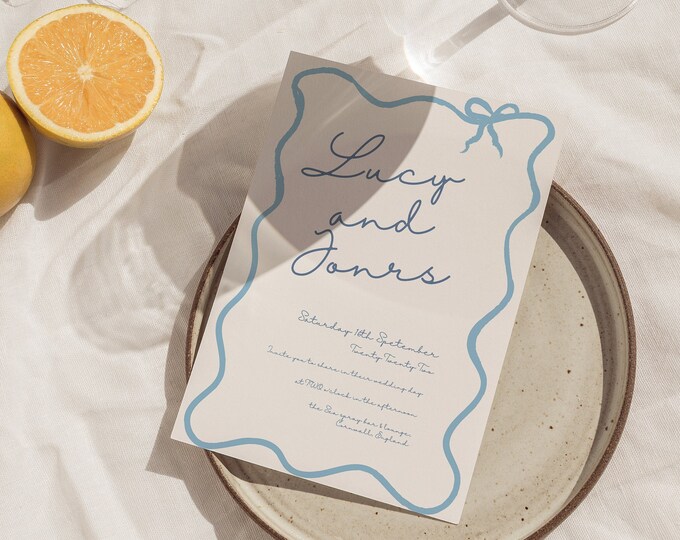 Lucy
and
Jonrs
Saturday 16th Spetember
Twenty Twenty Two
Invite you to share in their wedding day
at TWO o'clock in the afternoon
the Sea spray bar & lounge,
Cornwall, England